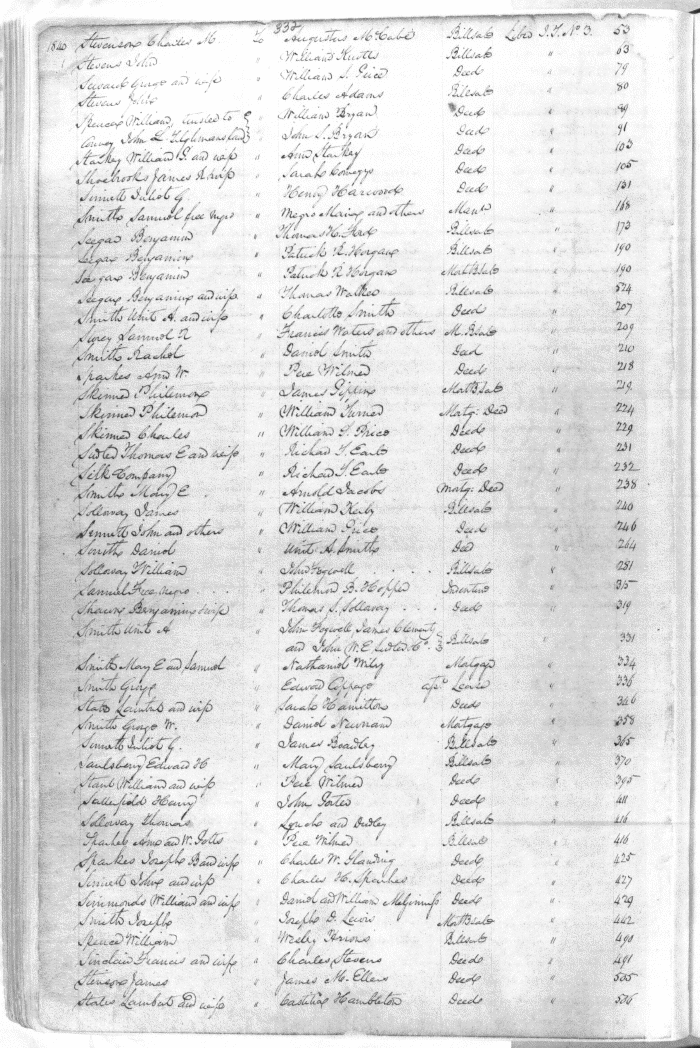 332
1840 Stevenson Charles M. to Augustus McCabe Billsale Liber J.T. No 3. 53
Stevens John " William Knotts Billsale " 63
Stewart George and wife " William S. Price Deed " 79
Stevens John " Charles Adams Billsale " 80
Spencer William, " William Bryan Deed " 89
John L. Tilghman " John S. Bryan Deed " 91
Starkey William and wife " Ann Starkey Deed " 103
Shoebrooks James & wife " Sarah Comegys Deed " 105
Sinnett Juliet G " Henry Harwood Deed " 131
Smith Samuel free negro " Negro Maria and others Manu " 168
Seegar Benjamin " Thomas H. Ford Billsale " 173
Seegar Benjamin " Patrick R. Morgan Billsale " 190
Seegar Benjamin " Patrick R Morgan MortBSale " 190
Seegar Benjamin and wife " Thomas Walker Billsale " 524
Smith Unit A. and wife " Charlotte Smith Deed " 207
Samuel R " Francis Waters and others M. BSale " 209
Smith Rachel " Daniel Smith Deed " 210
Sparkes Ann W. " Pere Wilmer Deed " 218
Skinner Philemon " James Pippin MortBSale " 219
Skinner Philemon " William Turner Mortg: Deed " 224
Skinner Charles " William S. Price Deed " 229
Sudler Thomas E and wife " Richard T. Earle Deed " 231
Silk Company " Richard T. Earle Deed " 232
Smith Mary E. " Arnold Jacobs Mortg: Deed " 238
Sollaway James " William Kirby Billsale " 240
Sinnett John and others " William Price Deed " 246
Smith Daniel " Unit A. Smith Deed " 264
Solloway William " John Fogwell Billsale " 281
Samuel Free negro " Philemon B. Hopper Indenture " 315
Benjamin & wife " Thomas S. Solloway Deed " 319
Smith Unit A " John Fogwell, James Clements
and John W. E. Sudler Billsale " 331
Smith Mary E and Samuel " Nathaniel Wiley Mortgage " 334
Smith George " Edward Coppage Lease " 336
States Lambert and wife " Sarah Hamilton Deed " 346
Smith George W. " Daniel Newnam Mortgage " 358
Sinnett Juliet G. " James Bradley Billsale " 365
Saulsbery Edward H " Mary Saulsbery Billsale " 370
Stant William and wife " Pere Wilmer Deed " 395
Satterfield Henry " John Porter Deed " 411
Solloway Thomas " and Dudley Billsale " 416
Sparkes Ann and W. Potts " Pere Wilmer Billsale " 416
Sparkes Joseph B and wife " Charles W. Glanding Deed " 425
Sinnett John and wife " Charles H. Sparkes Deed " 427
Simmonds William and wife " Daniel and William McGinnis Deed " 429
Smith Joseph " Joseph D. Lewis MortBSale " 442
Spence William " Wesley Billsale " 490
Sinclair Francis and wife " Charles Stevens Deed " 491
Stenson James " James M. Ellers Deed " 505
States Lambert and wife " Hambleton Deed " 506